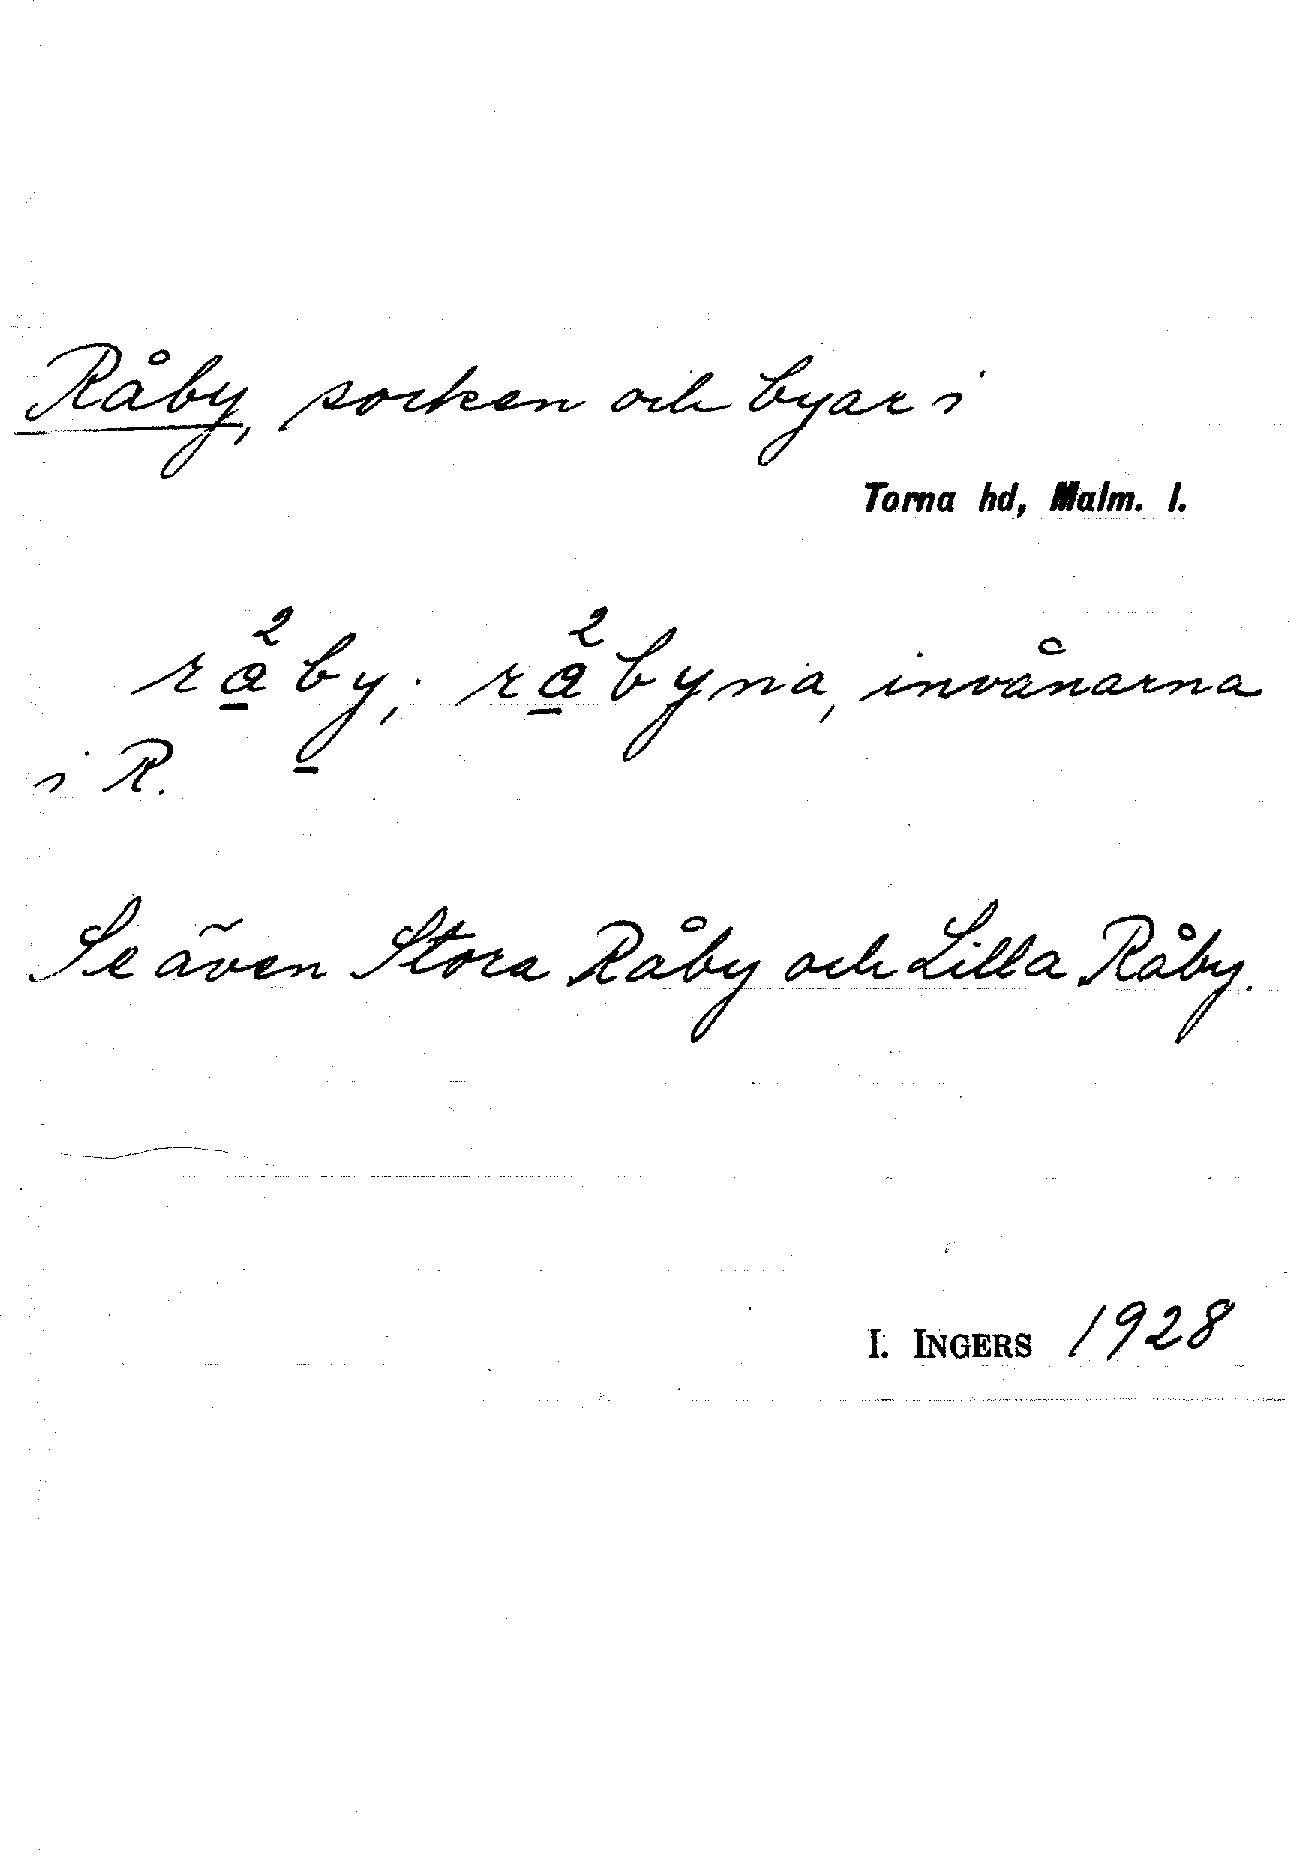 Råby, socken och byar i
Torna hd, Malm. l.
rå²by; rå²byna, invånarna
i R.
Se även Stora Råby och Lilla Råby.
I. INGERS 1928